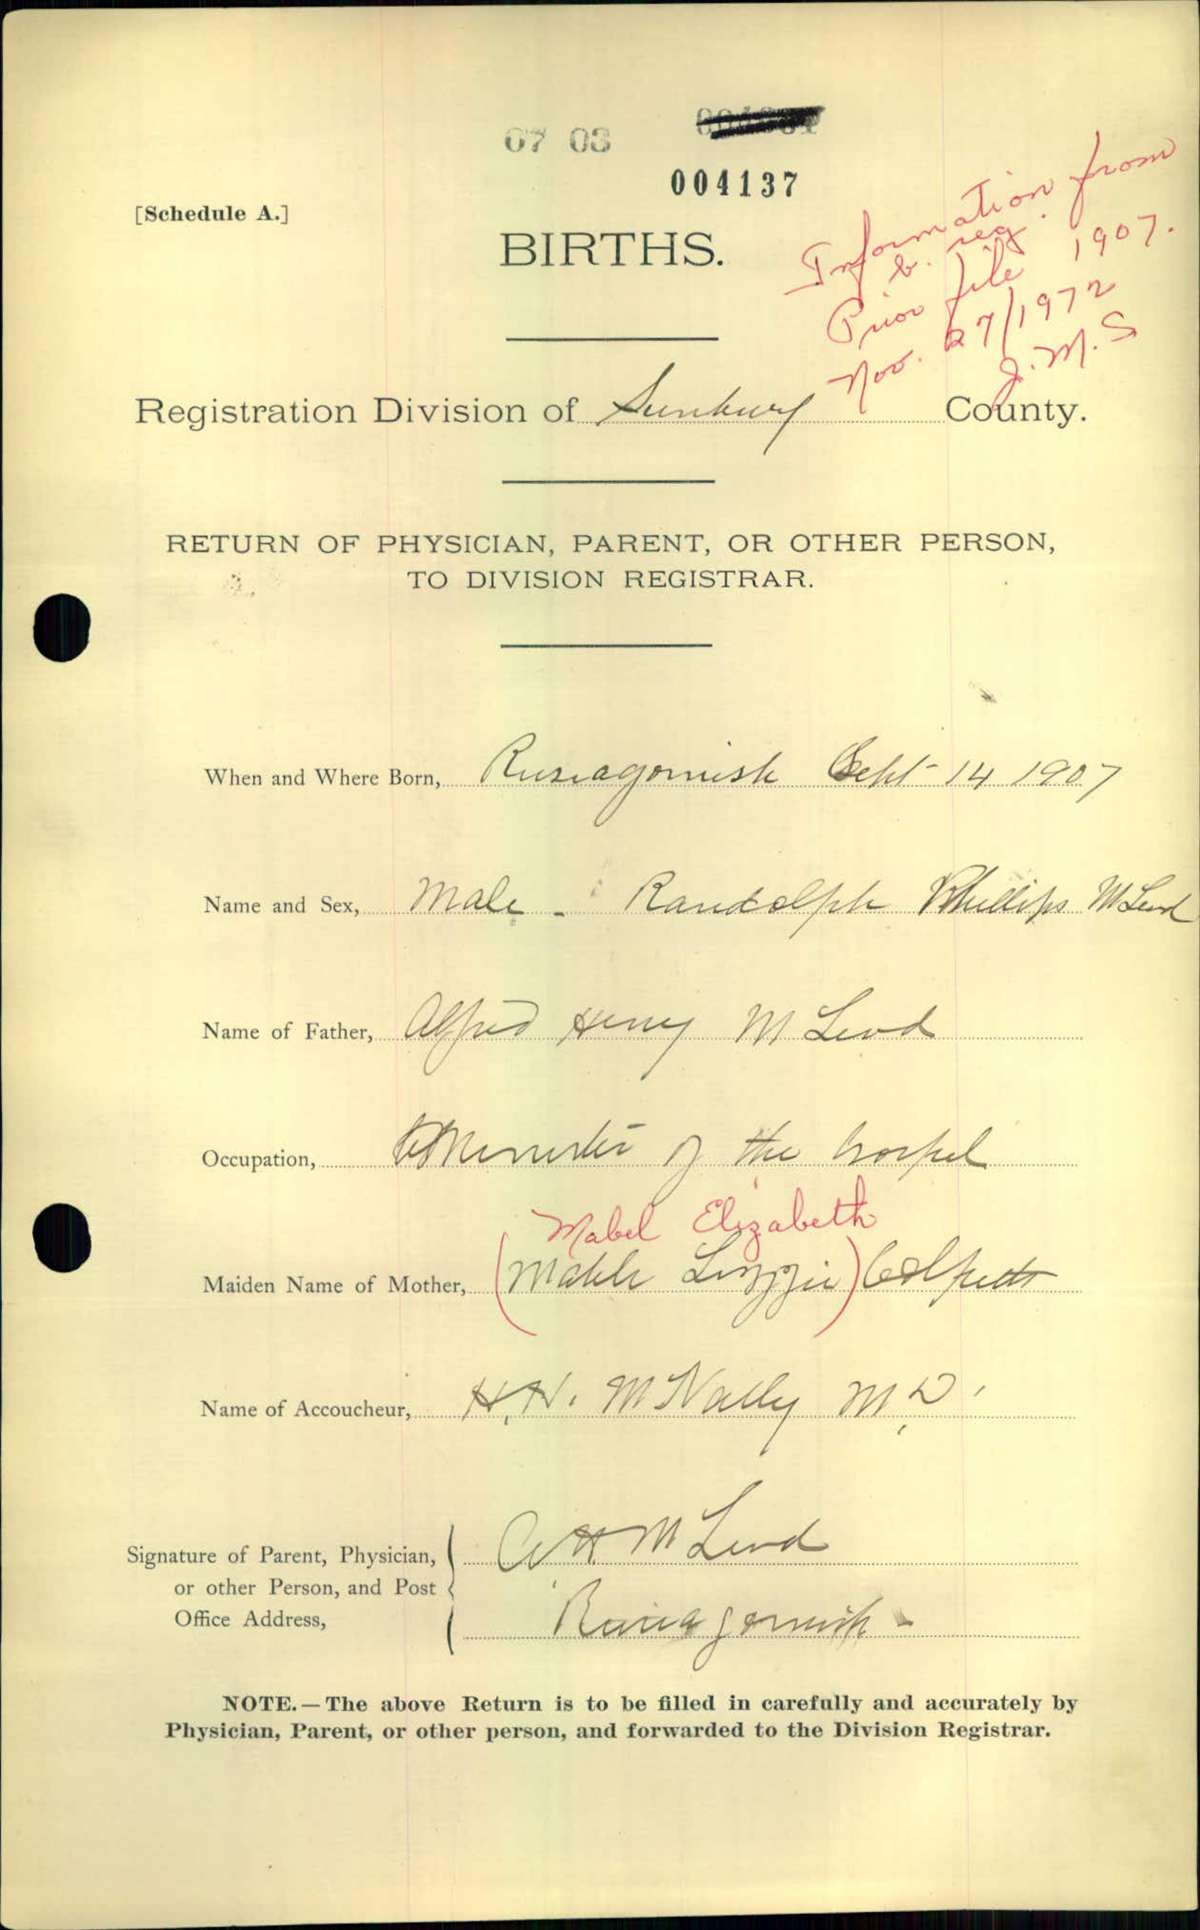 07 03
004137
[Schedule A.]
BIRTHS.
Information from
b. reg.
Prior file 1907.
Nov. 27/1972
J.M.S
Registration Division of Sunbury County.
RETURN OF PHYSICIAN, PARENT, OR OTHER PERSON,
TO DIVISION REGISTRAR.
When and Where Born, Rusiagornish Sept 14 1907
Name and Sex, Male - Randolph Phillips McLeod
Name of Father, Alfred Henry McLeod
Occupation, Minister of the Gospel
Mabel Elizabeth
Maiden Name of Mother, (Mable Lizzie) Colpitts
Name of Accoucheur, H.H. McNally M.D.
Signature of Parent, Physician, A H McLeod
or other Person, and Post
Office Address, Rusiagornish
NOTE.—The above Return is to be filled in carefully and accurately by
Physician, Parent, or other person, and forwarded to the Division Registrar.